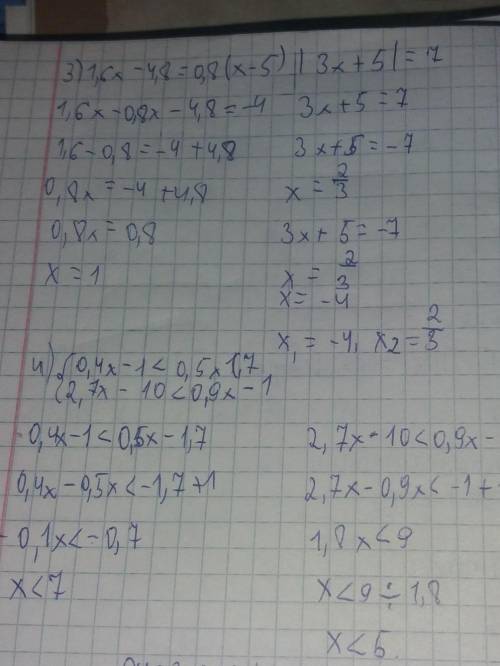 3) 1,6x - 4,8 = 0,8(x-5)
1,6x - 0,8x - 4,8 = -4
1,6 - 0,8 = -4 + 4,8
0,8x = -4 + 4,8
0,8x = 0,8
x = 1
|3x + 5| = 7
3x + 5 = 7
3x + 5 = -7
x = 2/3
3x + 5 = -7
x = 2/3
x = -4
x₁ = -4, x2 = 2/3
4) { 0,4x - 1 < 0,5x 1,7
2,7x - 10 < 0,9x - 1
0,4x - 1 < 0,5x - 1,7
0,4x - 0,5x < -1,7 + 1
- 0,1x < - 0,7
x < 7
2,7x - 10 < 0,9x -
2,7x - 0,9x < -1 +
1,8x < 9
x < 9 ÷ 1,8
x < 5